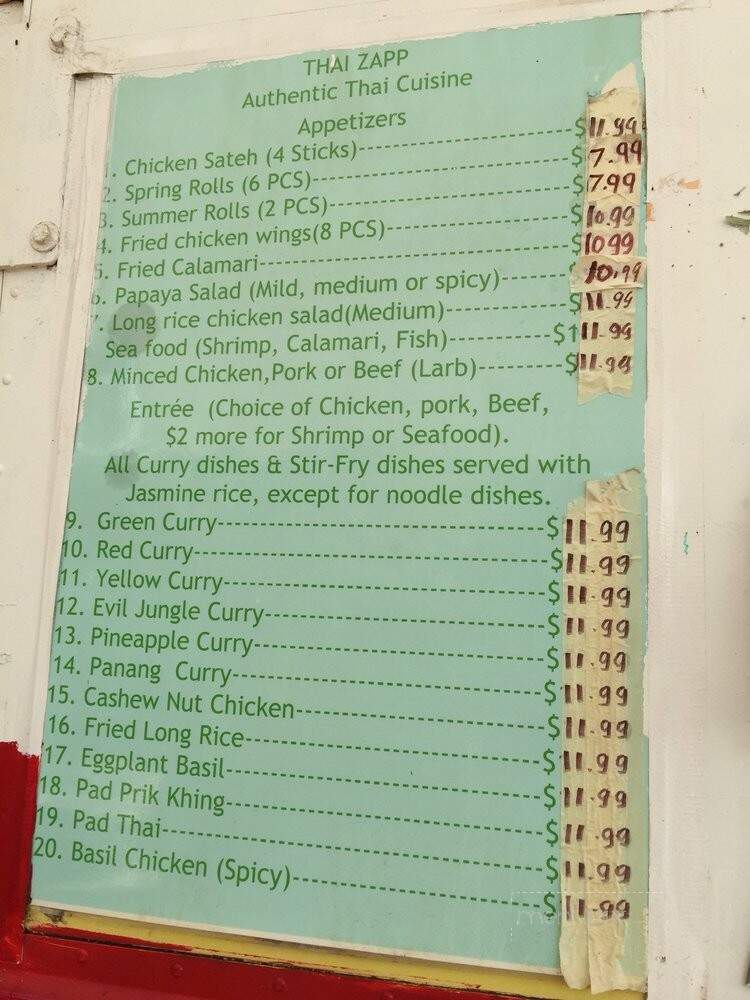 THAI ZAPP
Authentic Thai Cuisine
Appetizers
1. Chicken Sateh (4 Sticks)--------------------$11.99
2. Spring Rolls (6 PCS)--------------------$7.99
3. Summer Rolls (2 PCS)--------------------$7.99
4. Fried chicken wings(8 PCS)--------------------$10.99
5. Fried Calamari--------------------$1099
6. Papaya Salad (Mild, medium or spicy)-------$10.99
7. Long rice chicken salad(Medium)------------$11.99
Sea food (Shrimp, Calamari, Fish)----------$111.99
8. Minced Chicken,Pork or Beef (Larb)--------$11.99
Entrée (Choice of Chicken, pork, Beef,
$2 more for Shrimp or Seafood).
All Curry dishes & Stir-Fry dishes served with
Jasmine rice, except for noodle dishes.
9. Green Curry--------------------------------$11.99
10. Red Curry--------------------------------$11.99
11. Yellow Curry--------------------------------$11.99
12. Evil Jungle Curry----------------------------$11.99
13. Pineapple Curry----------------------------$11.99
14. Panang Curry-----------------------------$11.99
15. Cashew Nut Chicken------------------------$11.99
16. Fried Long Rice----------------------------$11.99
17. Eggplant Basil-----------------------------$11.99
18. Pad Prik Khing-----------------------------$11.99
19. Pad Thai-----------------------------------$11.99
20. Basil Chicken (Spicy)-----------------------$11.99